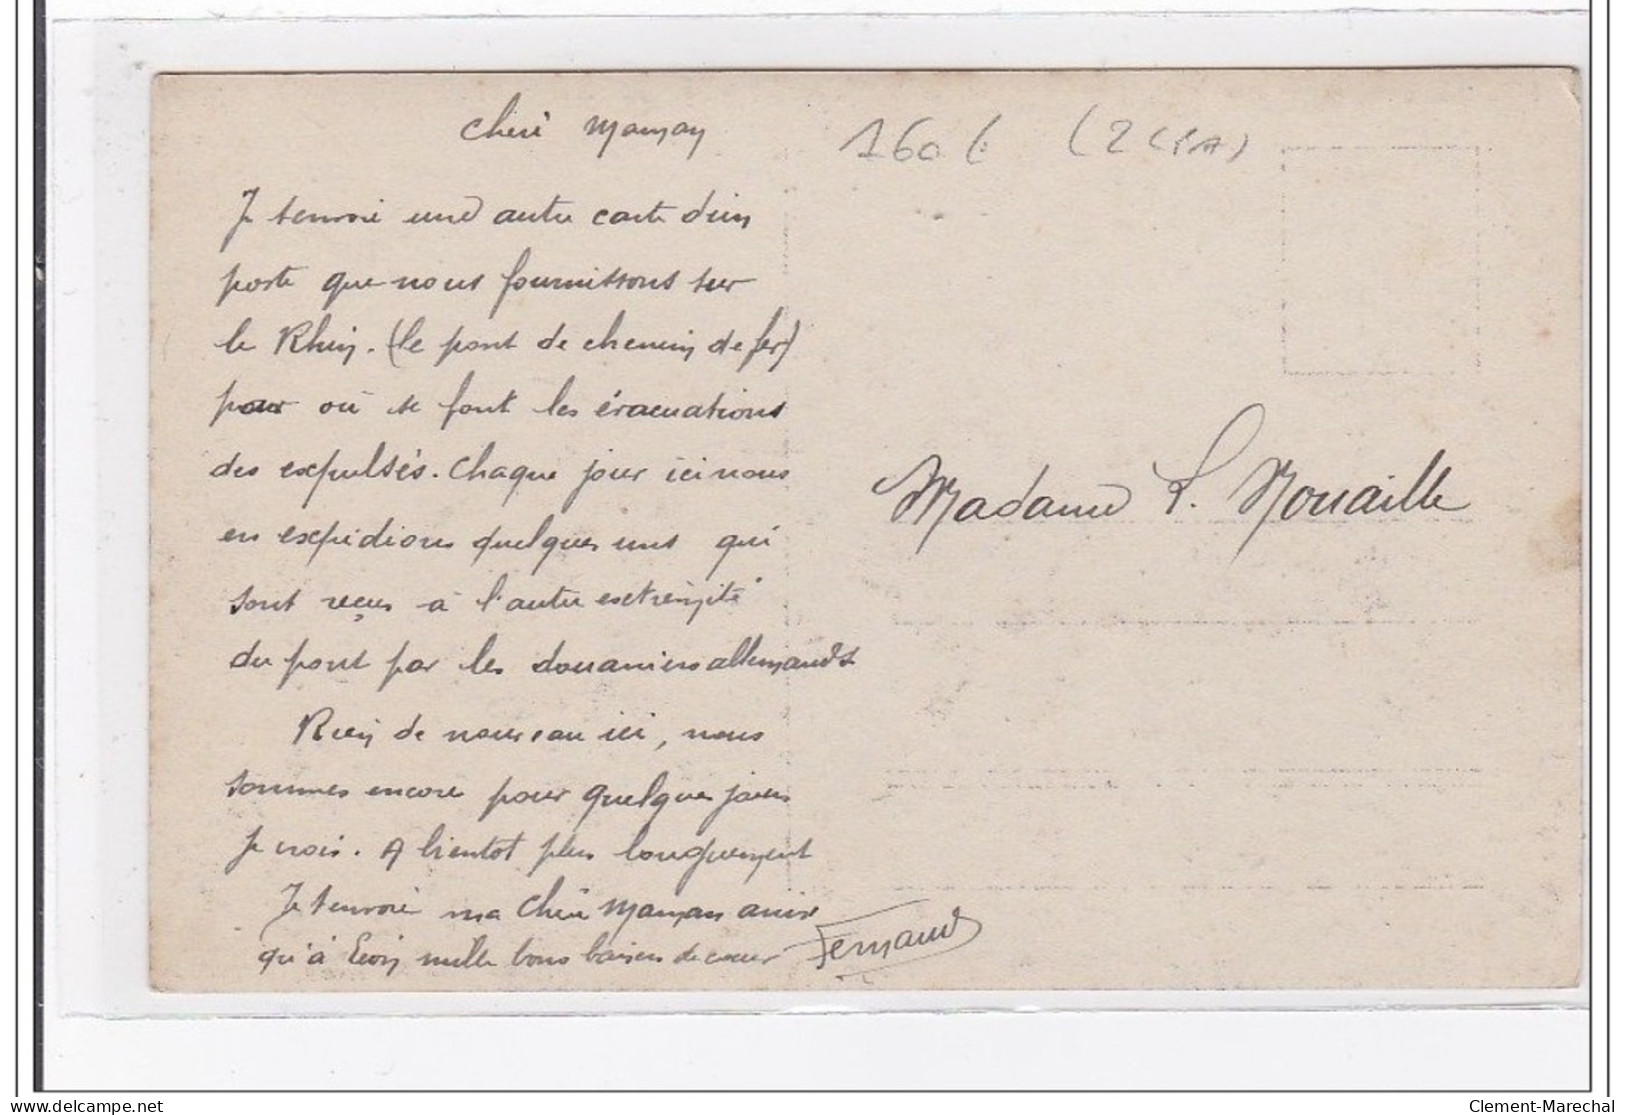 Chère Maman
160 € (2 CPA)
Je t'envoie une autre carte d'un
poste que nous fournissons sur
le Rhin. (le pont de chemin de fer)
par où se font les évacuations
des expulsés. Chaque jour ici nous
en expédions quelques uns qui
sont reçus à l'autre extrémité
du pont par les douaniers allemands
Madame L. Nouaille
Rien de nouveau ici, nous
sommes encore pour quelques jours
je crois. A bientot plus longuement
Je t'envoie ma Chère Maman ainsi
qu'à Léon mille bons baisers de cœur Fernand
www.delcampe.net
Clement-Marechal